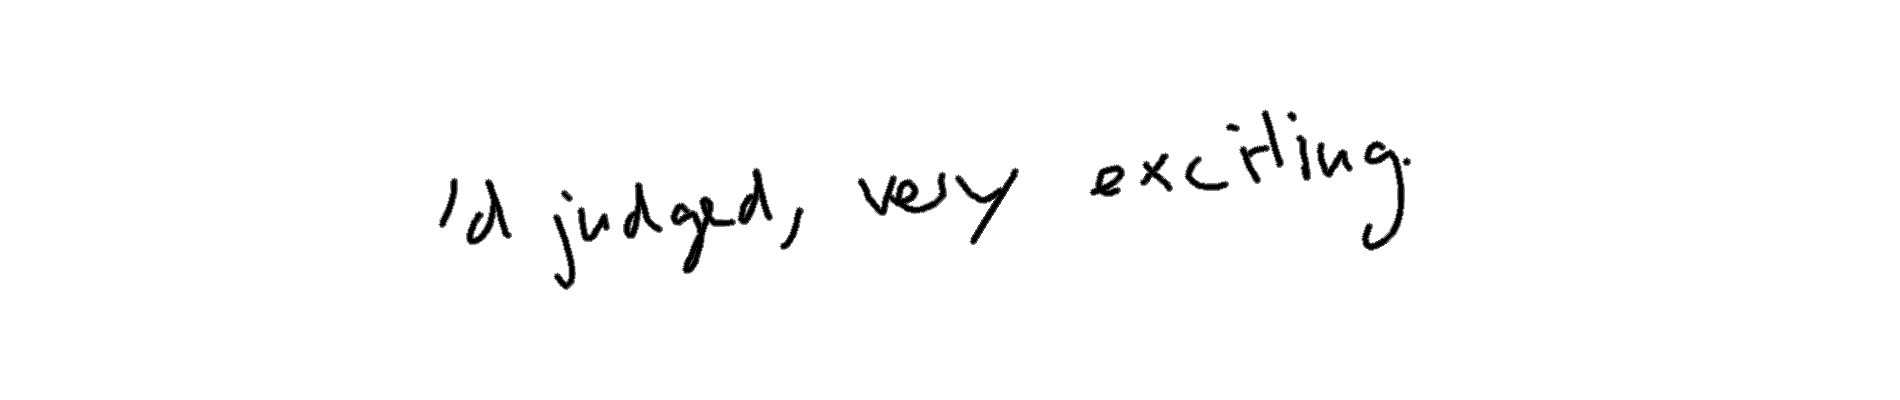 'd judged, very exciting.